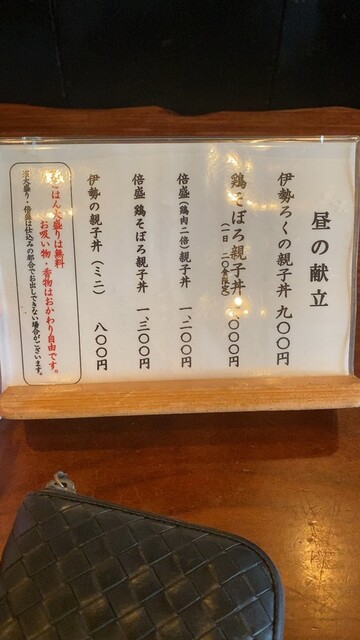 昼の献立
伊勢ろくの親子丼 九〇〇円
鶏そぼろ親子丼 一、〇〇〇円
（一日 二〇食限定）
倍盛（鶏肉二倍）親子丼 一、二〇〇円
倍盛 鶏そぼろ親子丼 一、三〇〇円
伊勢の親子丼（ミニ） 八〇〇円
ごはん大盛りは無料
お吸い物・香物はおかわり自由です。
※大盛り・倍盛は仕込みの都合でお出しできない場合がございます。